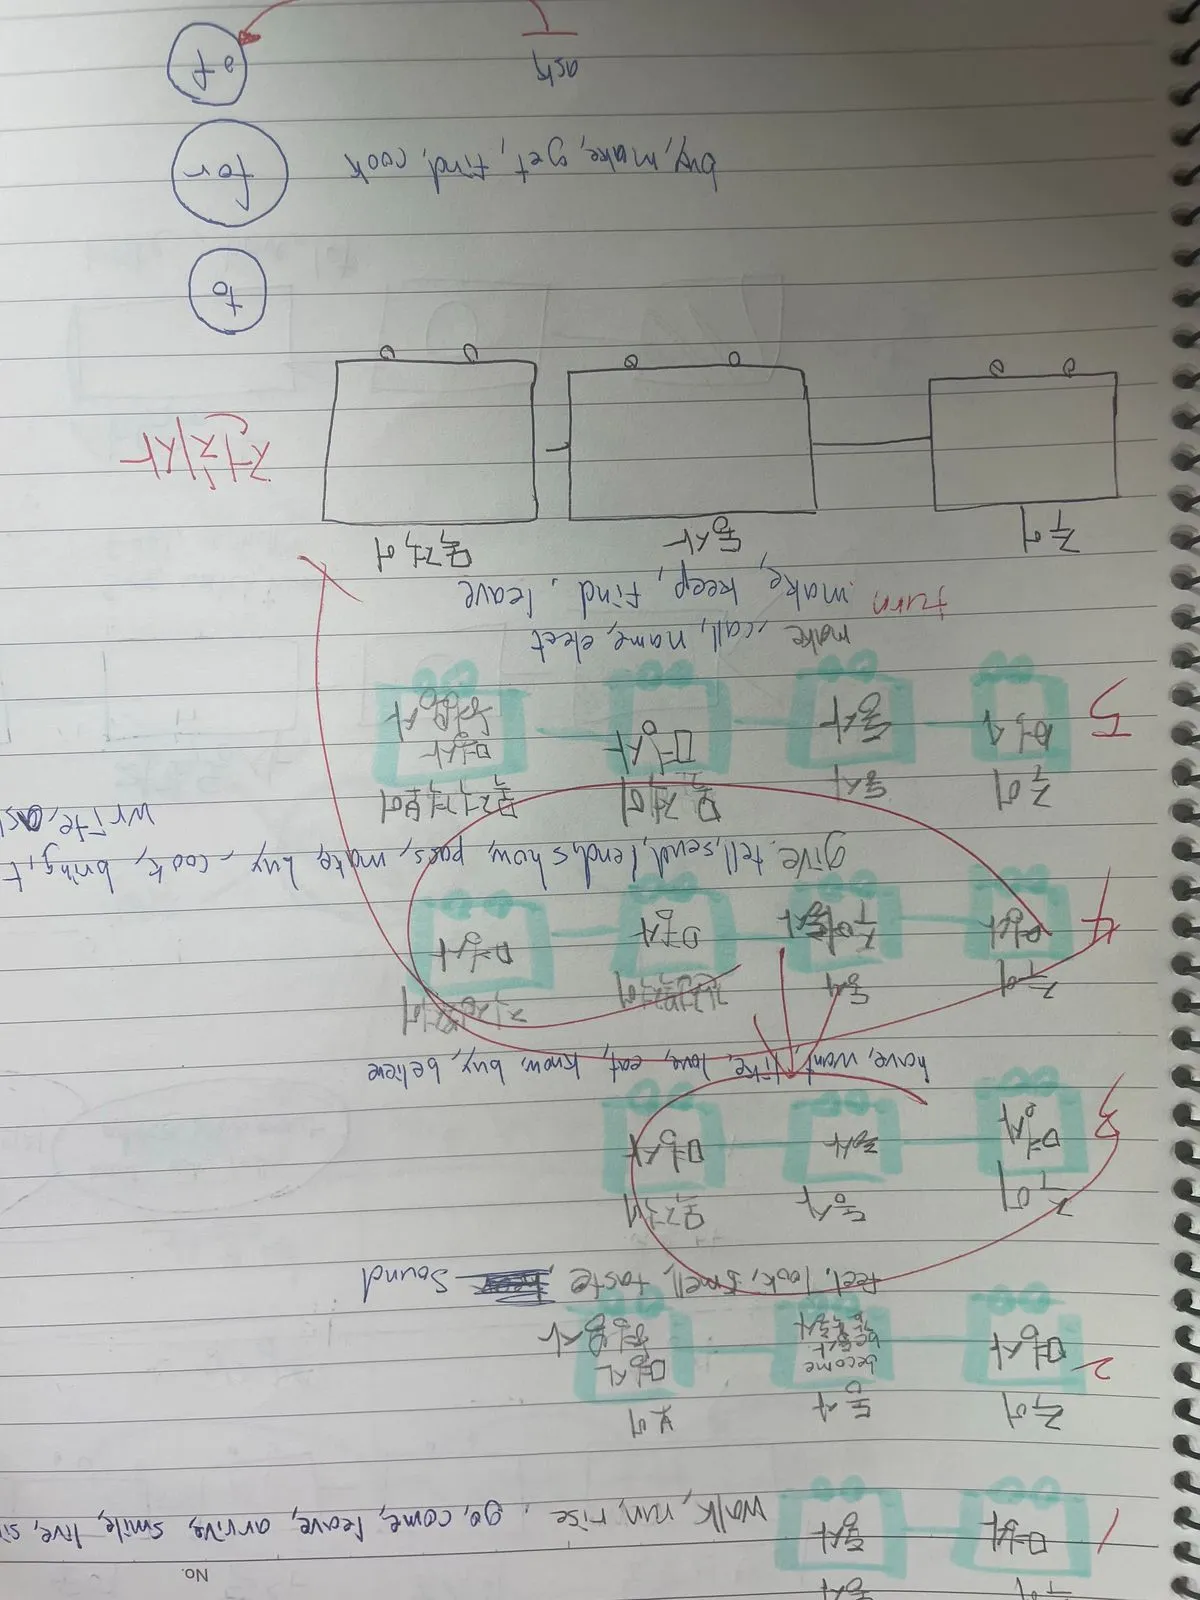 No.
주어 동사
1 명사 동사 walk, run, rise, go, come, leave, arrive, smile, live, si
주어 동사 보어
2 명사 become 명사
형용사
feel, look, smell, taste, sound
주어 동사 목적어
3 명사 동사 명사
have, want, like, love, eat, know, buy, believe
주어 동사
4 명사 명사 명사
give, tell, send, lend, show, pass, make, buy, cook, bring, t
write, as
주어 동사 목적어 목적격보어
5 명사 동사 명사 명사
형용사
make, call, name, elect
turn make, keep, find, leave
주어 동사 목적어
전치사
to
buy, make, get, find, cook for
ask of